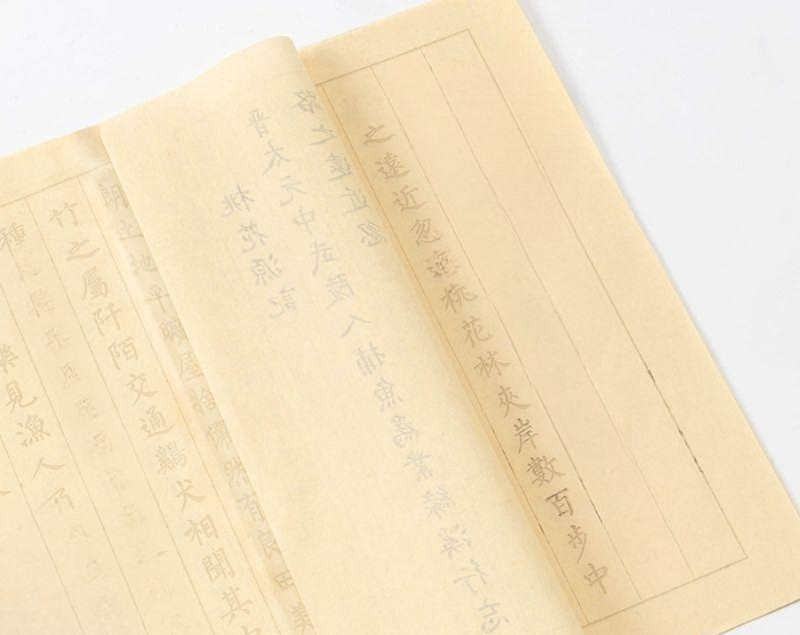 之遠近忽逢桃花林夾岸數百步中
桃花源記
晋太元中武陵人捕魚為業緣溪行忘
路之遠近忽
朗土地平曠屋捨儼然有良田美
竹之屬阡陌交通鷄犬相聞其中
種
樂見漁人乃